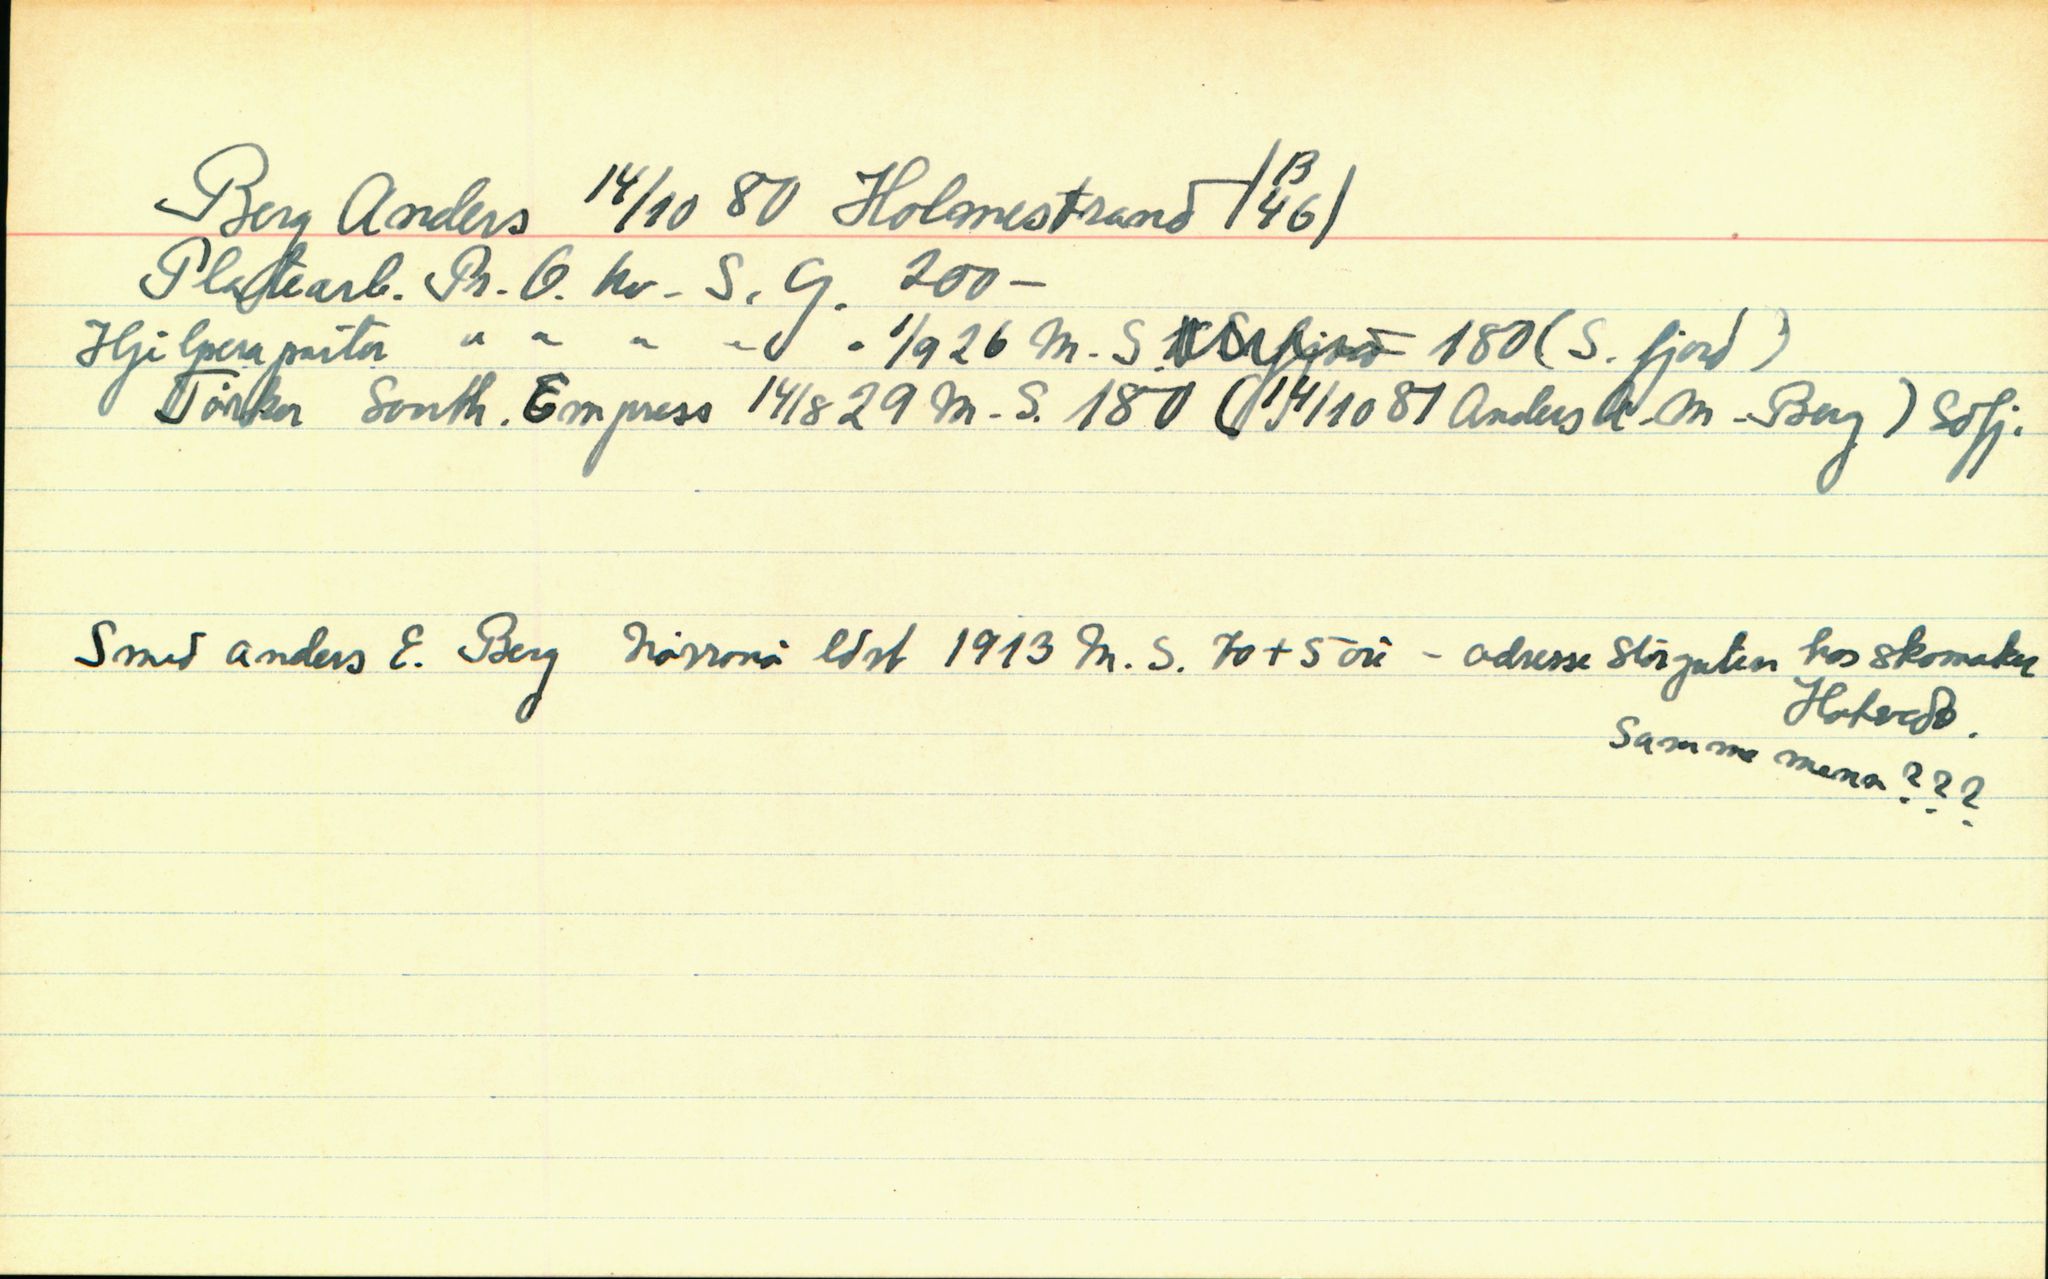 Berg Anders 14/10 80 Holmestrand (B 46)
Platearb. Pr. O. kv. S. G. 200-
Hjelpereparatör " " " " " 1/9 26 M. S. 180 (S. fjord)
Törker South. Empress 14/8 29 M. S. 180 (14/10 81 Anders A. M. Berg) Söfj.
Smed Anders E. Berg höst 1913 M. S. 70 + 5 öre - adresse Storgaten hos skomaker
Hotvedt.
Samme mann???